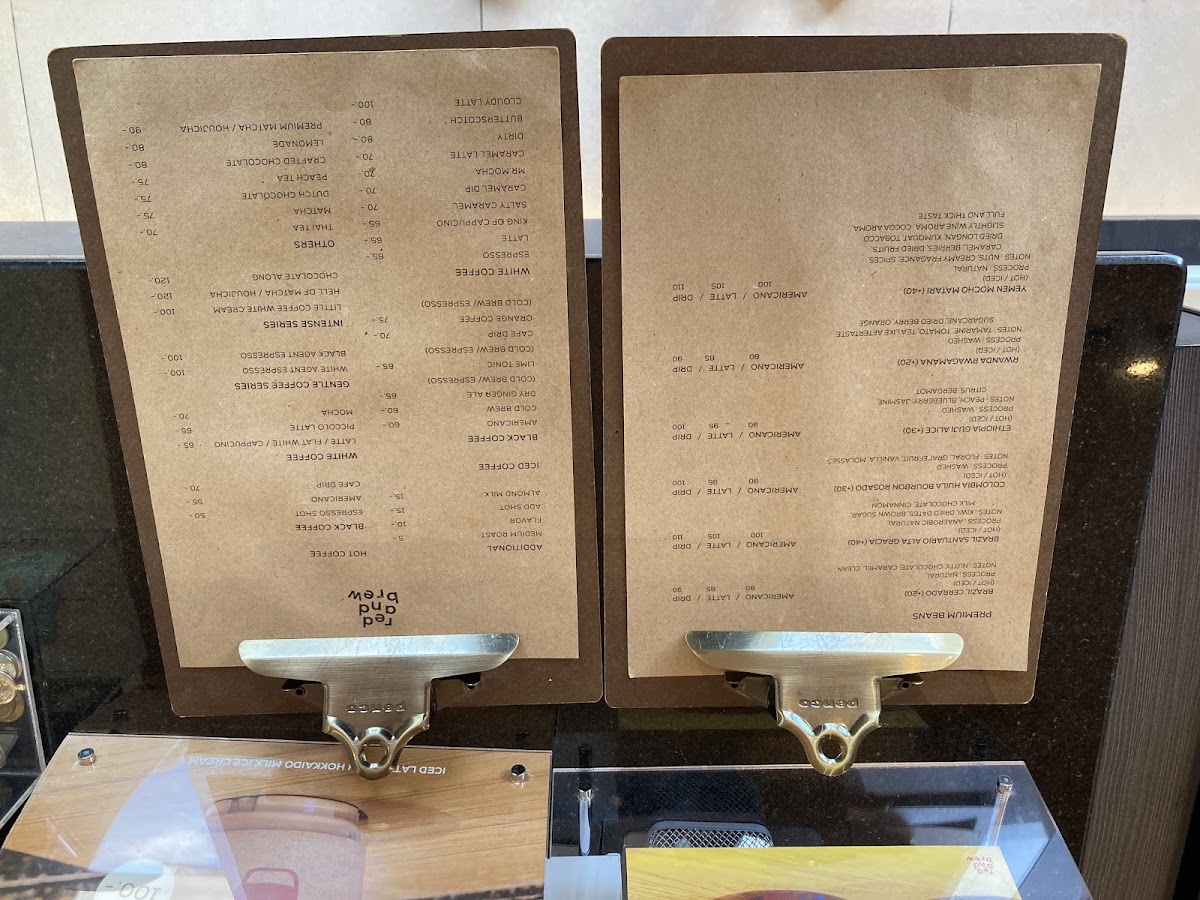 PREMIUM BEANS
BRAZIL CERRADO (+20)
(HOT / ICED)
PROCESS : NATURAL
NOTES : NUTTY, CHOCOLATE, CARAMEL, CLEAN
AMERICANO / LATTE / DRIP
80 85 90
BRAZIL SANTUARIO ALTA GRACIA (+40)
(HOT / ICED)
PROCESS : ANAEROBIC NATURAL
NOTES : KIWI, DRIED DATES, BROWN SUGAR,
MILK CHOCOLATE, CINNAMON
AMERICANO / LATTE / DRIP
100 105 110
COLOMBIA HUILA BOURBON ROSADO (+30)
(HOT / ICED)
PROCESS : WASHED
NOTES : FLORAL, GRAPEFRUIT, VANILLA, MOLASSES
AMERICANO / LATTE / DRIP
90 95 100
ETHIOPIA GUJI ALICE (+30)
(HOT / ICED)
PROCESS : WASHED
NOTES : PEACH, BLUEBERRY, JASMINE
CITRUS, BERGAMOT
AMERICANO / LATTE / DRIP
90 95 100
RWANDA RWAGAMANA (+20)
(HOT / ICED)
PROCESS : WASHED
NOTES : TAMARINE, TOMATO, TEA LIKE AFTERTASTE
SUGARCANE, DRIED BERRY, ORANGE
AMERICANO / LATTE / DRIP
80 85 90
YEMEN MOCHO MATARI (+40)
(HOT / ICED)
PROCESS : NATURAL
NOTES : NUTS, CREAMY FRAGANCE, SPICES,
CARAMEL, BERRIES, DRIED FRUITS,
DRIED LONGAN, KUMQUAT, TOBACCO
SLIGHTLY WINE AROMA, COCOA AROMA
FULL AND THICK TASTE
AMERICANO / LATTE / DRIP
100 105 110
penco
red
and
brew
ADDITIONAL
MEDIUM ROAST 5.-
FLAVOR 10.-
ADD SHOT 15.-
ALMOND MILK 15.-
ICED COFFEE
BLACK COFFEE
AMERICANO 60.-
COLD BREW 60.-
DRY GINGER ALE 65
(COLD BREW/ ESPRESSO)
LIME TONIC 65.-
(COLD BREW/ ESPRESSO)
CAFE DRIP 70.-
ORANGE COFFEE 75.-
(COLD BREW/ ESPRESSO)
WHITE COFFEE
ESPRESSO 65.-
LATTE 65.-
KING OF CAPPUCINO 65.-
SALTY CARAMEL 70.-
CARAMEL DIP 70.-
MR.MOCHA 70.-
CARAMEL LATTE 70.-
DIRTY 80.-
BUTTERSCOTCH 80.-
CLOUDY LATTE 100.-
HOT COFFEE
BLACK COFFEE
ESPRESSO SHOT 50.-
AMERICANO 55.-
CAFE DRIP 70.-
WHITE COFFEE
LATTE / FLAT WHITE / CAPPUCINO 65.-
PICCOLO LATTE 65.-
MOCHA 70.-
GENTLE COFFEE SERIES
WHITE AGENT ESPRESSO 100.-
BLACK AGENT ESPRESSO 100.-
INTENSE SERIES
LITTLE COFFEE WHITE CREAM 100.-
HELL OF MATCHA / HOUJICHA 120.-
CHOCOLATE ALONG 120.-
OTHERS
THAI TEA 70.-
MATCHA 75.-
DUTCH CHOCOLATE 75.-
PEACH TEA 75.-
CRAFTED CHOCOLATE 80.-
LEMONADE 80.-
PREMIUM MATCHA / HOUJICHA 90.-
penco
red
and
brew
ICED LAT HOKKAIDO MILK ICE CREAM
100.-